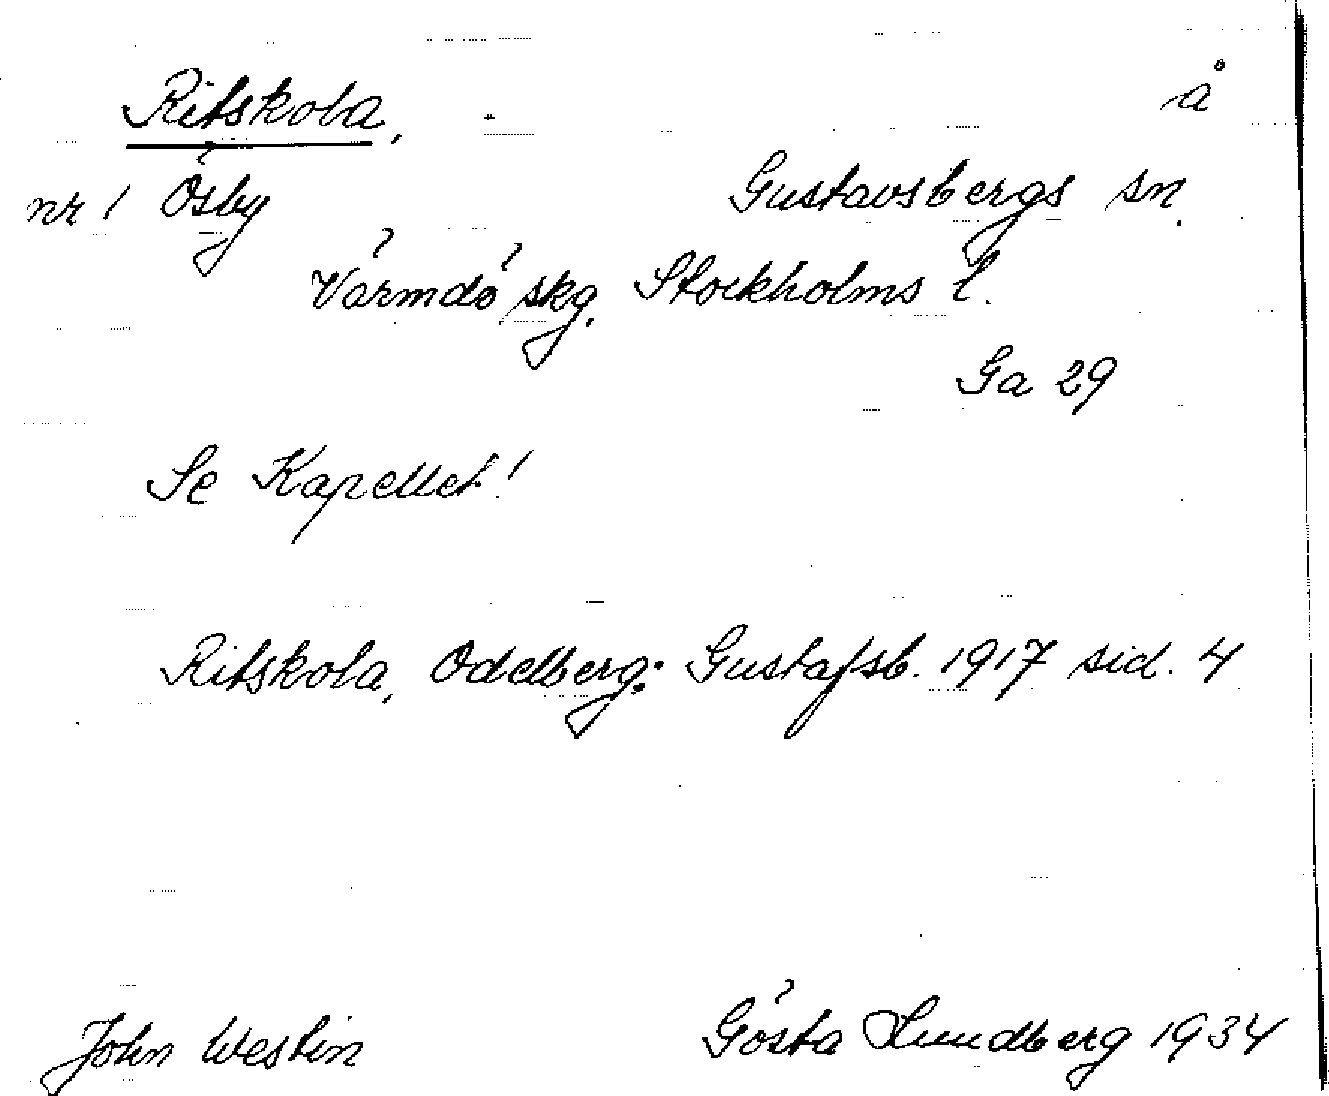 Ritskola, å
nr 1 Ösby Gustavsbergs sn.
Värmdö skg. Stockholms l.
Ga 29
Se Kapellet!
Ritskola, Odelberg: Gustafsb. 1917 sid. 4
John Westin Gösta Lundberg 1934